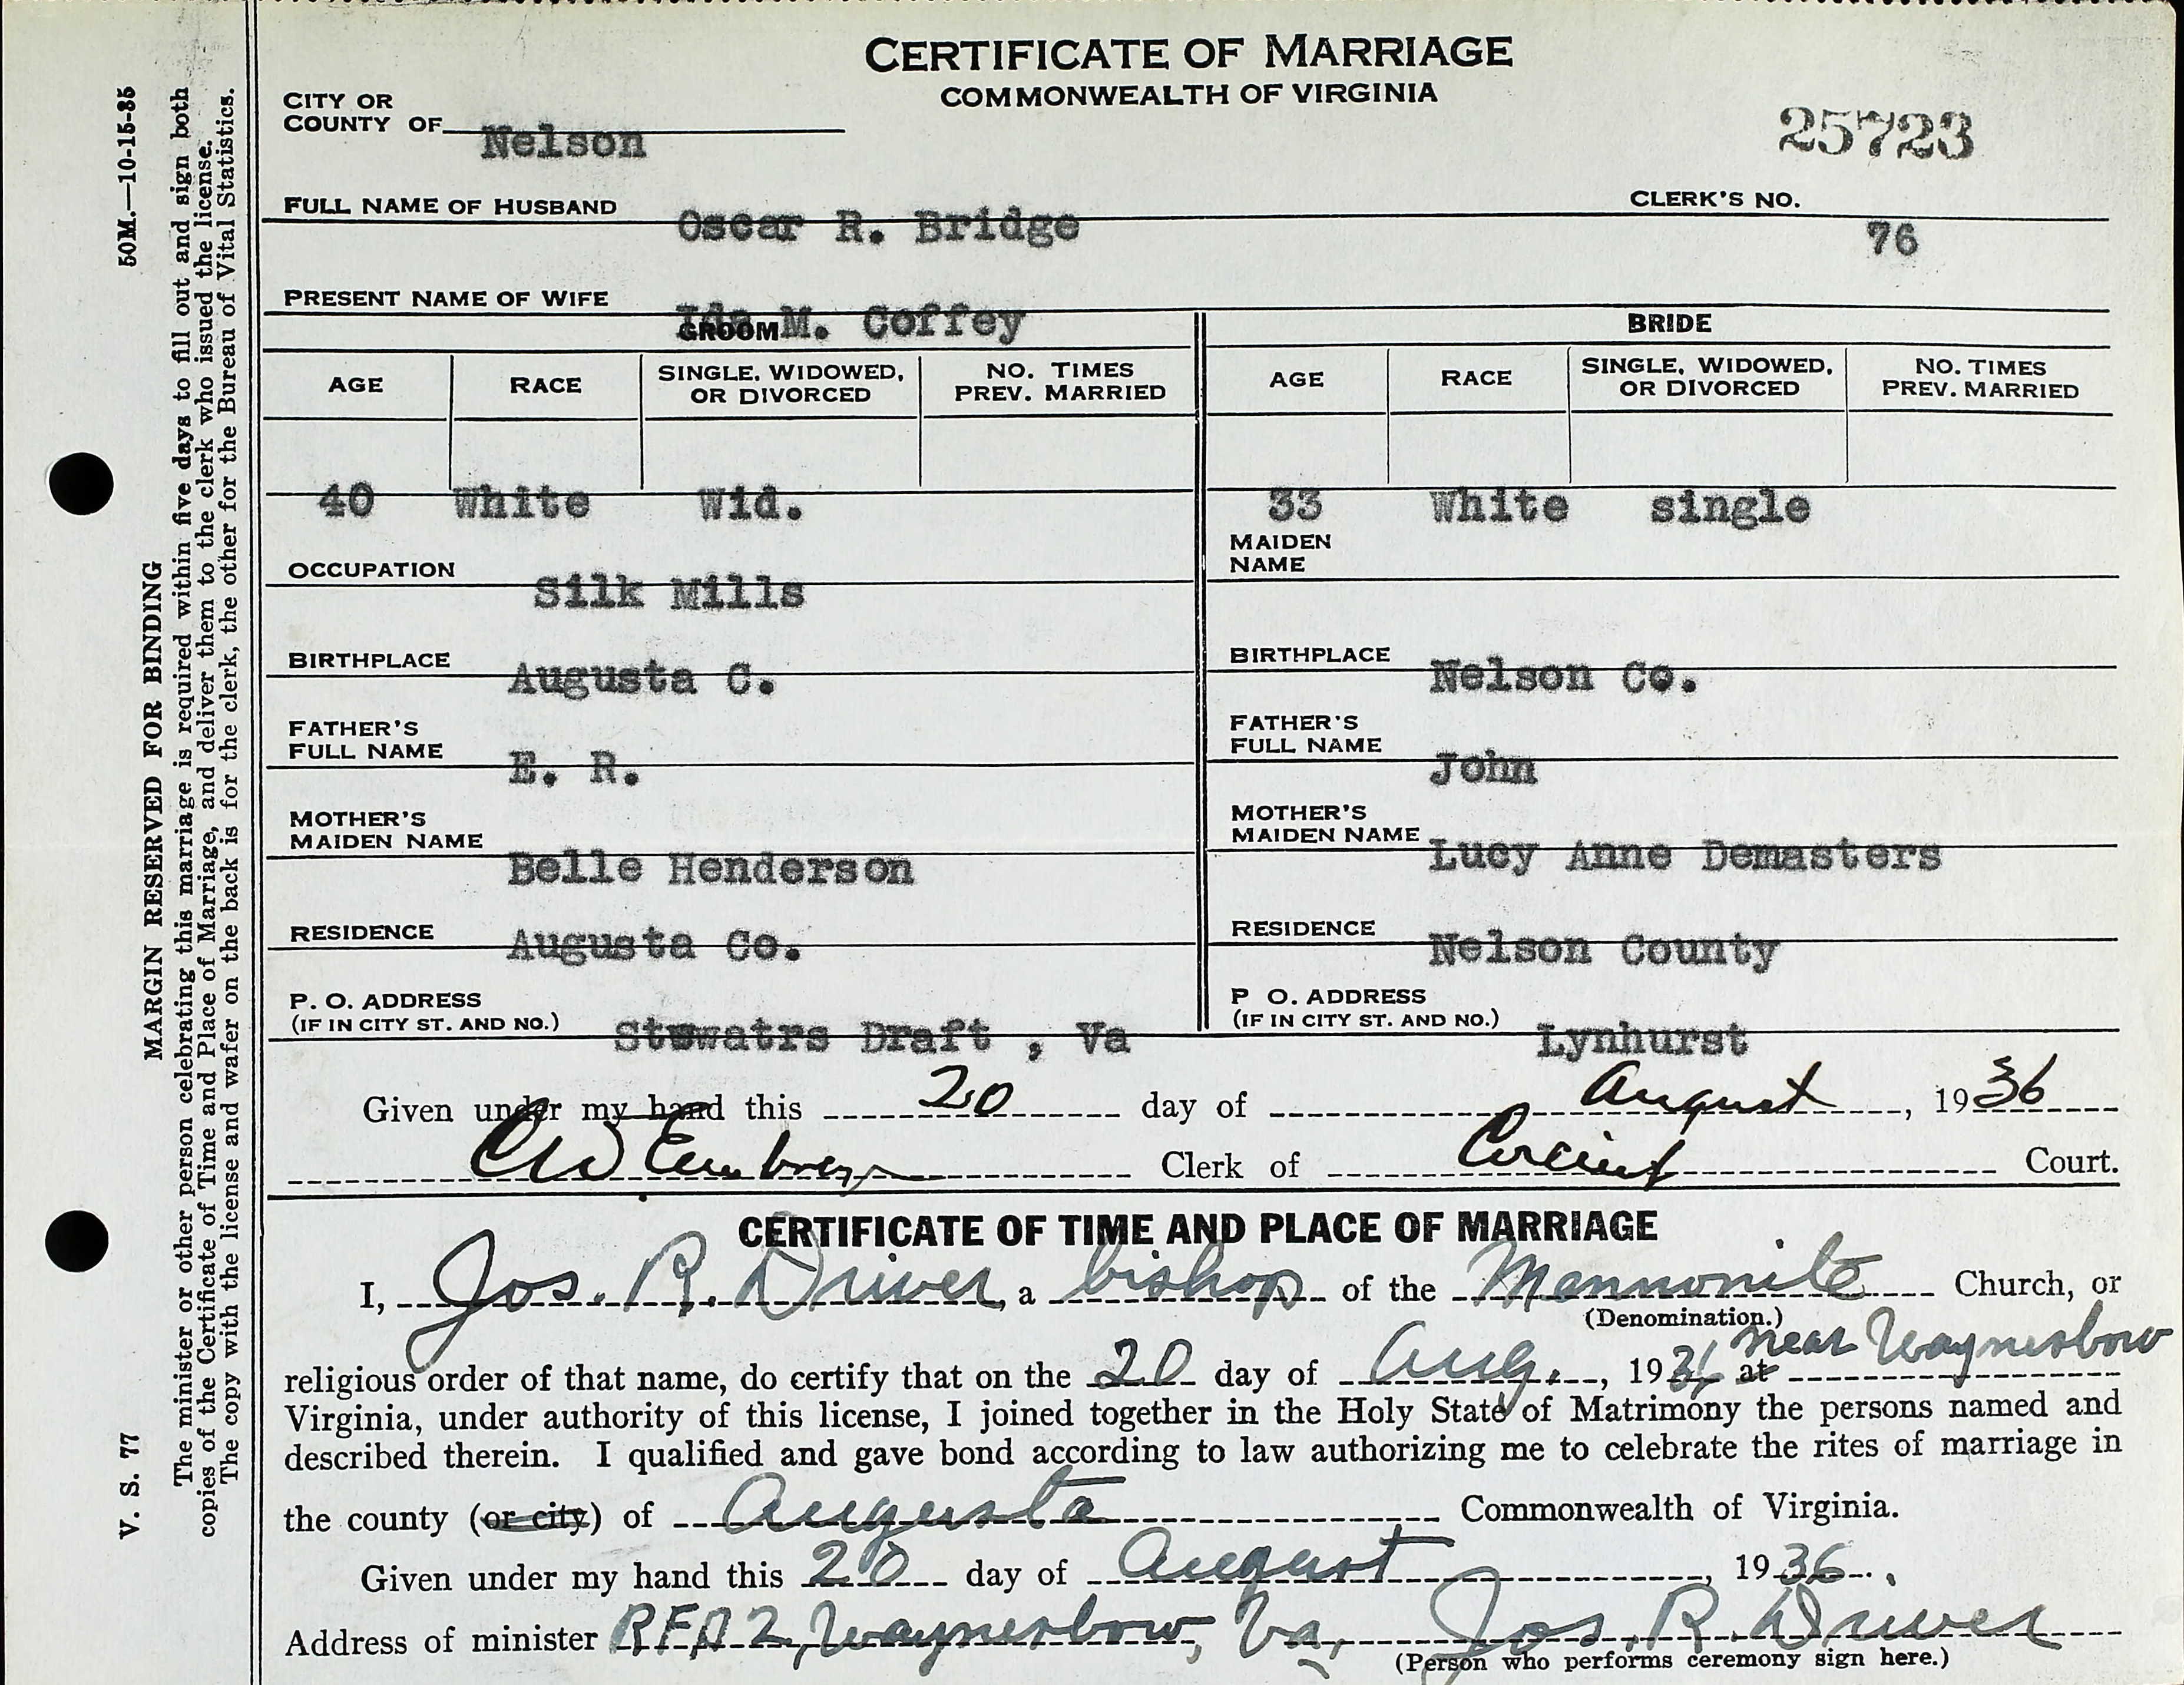 CERTIFICATE OF MARRIAGE
COMMONWEALTH OF VIRGINIA
25723
CITY OR
COUNTY OF Nelson
FULL NAME OF HUSBAND Oscar R. Bridge
CLERK'S NO. 76
PRESENT NAME OF WIFE Ida M. Coffey
GROOM
BRIDE
AGE RACE SINGLE, WIDOWED, OR DIVORCED NO. TIMES PREV. MARRIED
AGE RACE SINGLE, WIDOWED, OR DIVORCED NO. TIMES PREV. MARRIED
40 White Wid.
33 White single
OCCUPATION Silk Mills
MAIDEN NAME
BIRTHPLACE Augusta C.
BIRTHPLACE Nelson Co.
FATHER'S FULL NAME E. R.
FATHER'S FULL NAME John
MOTHER'S MAIDEN NAME Belle Henderson
MOTHER'S MAIDEN NAME Lucy Anne Demasters
RESIDENCE Augusta Co.
RESIDENCE Nelson County
P. O. ADDRESS
(IF IN CITY ST. AND NO.) Stewatrs Draft , Va
P O. ADDRESS
(IF IN CITY ST. AND NO.) Lynhurst
Given under my hand this 20 day of August, 1936
CW Embrey Clerk of Circuit Court.
CERTIFICATE OF TIME AND PLACE OF MARRIAGE
I, Jos. R. Driver, a bishop of the Mennonite Church, or
(Denomination.)
religious order of that name, do certify that on the 20 day of Aug., 1936 at near Waynesboro
Virginia, under authority of this license, I joined together in the Holy State of Matrimony the persons named and
described therein. I qualified and gave bond according to law authorizing me to celebrate the rites of marriage in
the county (or city) of Augusta Commonwealth of Virginia.
Given under my hand this 20 day of August, 1936.
Address of minister RFD 2, Waynesboro, Va, Jos. R. Driver
(Person who performs ceremony sign here.)
V. S. 77 MARGIN RESERVED FOR BINDING 50M.—10-15-35
The minister or other person celebrating this marriage is required within five days to fill out and sign both
copies of the Certificate of Time and Place of Marriage, and deliver them to the clerk who issued the license.
The copy with the license and wafer on the back is for the clerk, the other for the Bureau of Vital Statistics.